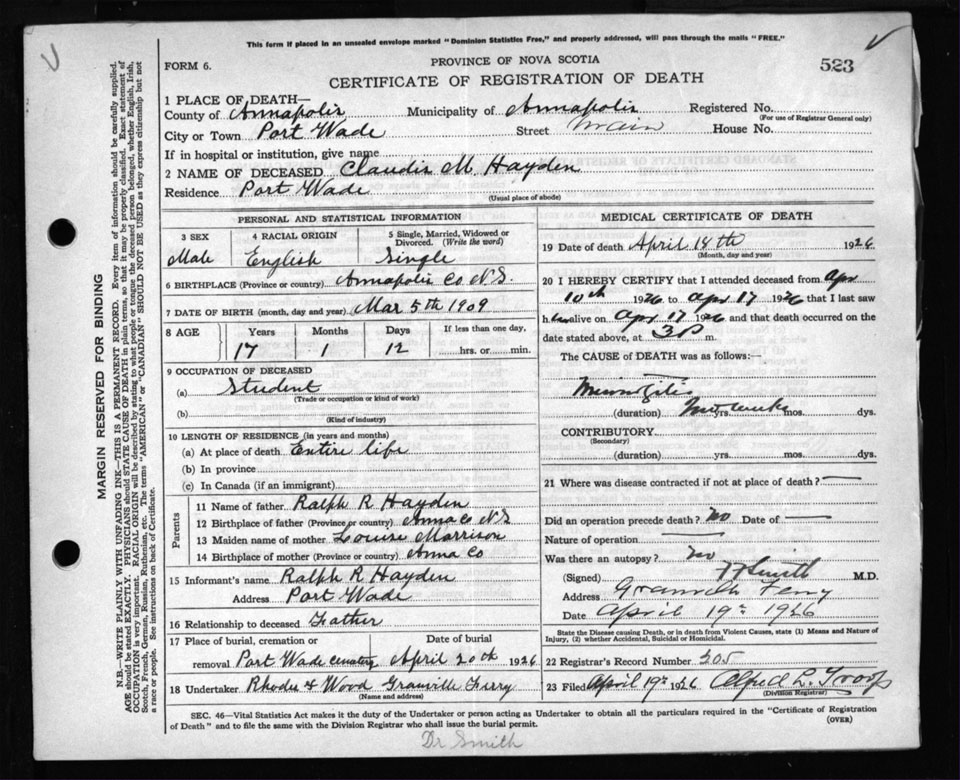 This form if placed in an unsealed envelope marked "Dominion Statistics Free," and properly addressed, will pass through the mails "FREE."
FORM 6.
PROVINCE OF NOVA SCOTIA
523
CERTIFICATE OF REGISTRATION OF DEATH
MARGIN RESERVED FOR BINDING
N.B.—WRITE PLAINLY WITH UNFADING INK—THIS IS A PERMANENT RECORD. Every item of information should be carefully supplied.
AGE should be stated EXACTLY. PHYSICIANS should STATE CAUSE OF DEATH in plain terms, so that it may be properly classified. Exact statement of
OCCUPATION is very important. RACIAL ORIGIN will be described by stating to what people or tongue the deceased person belonged, whether English, Irish,
Scotch, French, German, Russian, Ruthenian, etc. The terms "AMERICAN" or "CANADIAN" SHOULD NOT BE USED as they express citizenship but not
a race or people. See instructions on back of Certificate.
1 PLACE OF DEATH—
County of Annapolis Municipality of Annapolis Registered No.
(For use of Registrar General only)
City or Town Port Wade Street Main House No.
If in hospital or institution, give name
2 NAME OF DECEASED Claudis M. Hayden
Residence Port Wade
(Usual place of abode)
PERSONAL AND STATISTICAL INFORMATION
3 SEX 4 RACIAL ORIGIN 5 Single, Married, Widowed or
Divorced. (Write the word)
Male English Single
6 BIRTHPLACE (Province or country) Annapolis Co N.S.
7 DATE OF BIRTH (month, day and year) Mar 5th 1909
8 AGE Years Months Days If less than one day,
17 1 12 hrs. or min.
9 OCCUPATION OF DECEASED
(a) Student
(Trade or occupation or kind of work)
(b)
(Kind of industry)
10 LENGTH OF RESIDENCE (in years and months)
(a) At place of death Entire life
(b) In province
(c) In Canada (if an immigrant)
Parents
11 Name of father Ralph R Hayden
12 Birthplace of father (Province or country) Anna Co N.S
13 Maiden name of mother Louise Morrison
14 Birthplace of mother (Province or country) Anna Co
15 Informant's name Ralph R Hayden
Address Port Wade
16 Relationship to deceased Father
17 Place of burial, cremation or Date of burial
removal Port Wade cemetery April 20th 1926
18 Undertaker Rhodes & Wood Granville Ferry
(Name and address)
MEDICAL CERTIFICATE OF DEATH
19 Date of death April 18th 1926
(Month, day and year)
20 I HEREBY CERTIFY that I attended deceased from Apr
10th 1926 to Apr 17 1926 that I last saw
him alive on Apr 17 1926 and that death occurred on the
date stated above, at m.
The CAUSE of DEATH was as follows:—
(duration) yrs. mos. dys.
CONTRIBUTORY
(Secondary)
(duration) yrs. mos. dys.
21 Where was disease contracted if not at place of death? —
Did an operation precede death? no Date of —
Nature of operation —
Was there an autopsy? no
(Signed) Smith M.D.
Address Granville Ferry
Date April 19th 1926
State the Disease causing Death, or in death from Violent Causes, state (1) Means and Nature of
Injury, (2) whether Accidental, Suicidal or Homicidal.
22 Registrar's Record Number 205
23 Filed April 19th 1926 Alfred L. Troop
(Division Registrar)
SEC. 46—Vital Statistics Act makes it the duty of the Undertaker or person acting as Undertaker to obtain all the particulars required in the "Certificate of Registration
of Death" and to file the same with the Division Registrar who shall issue the burial permit.
(OVER)
Dr Smith